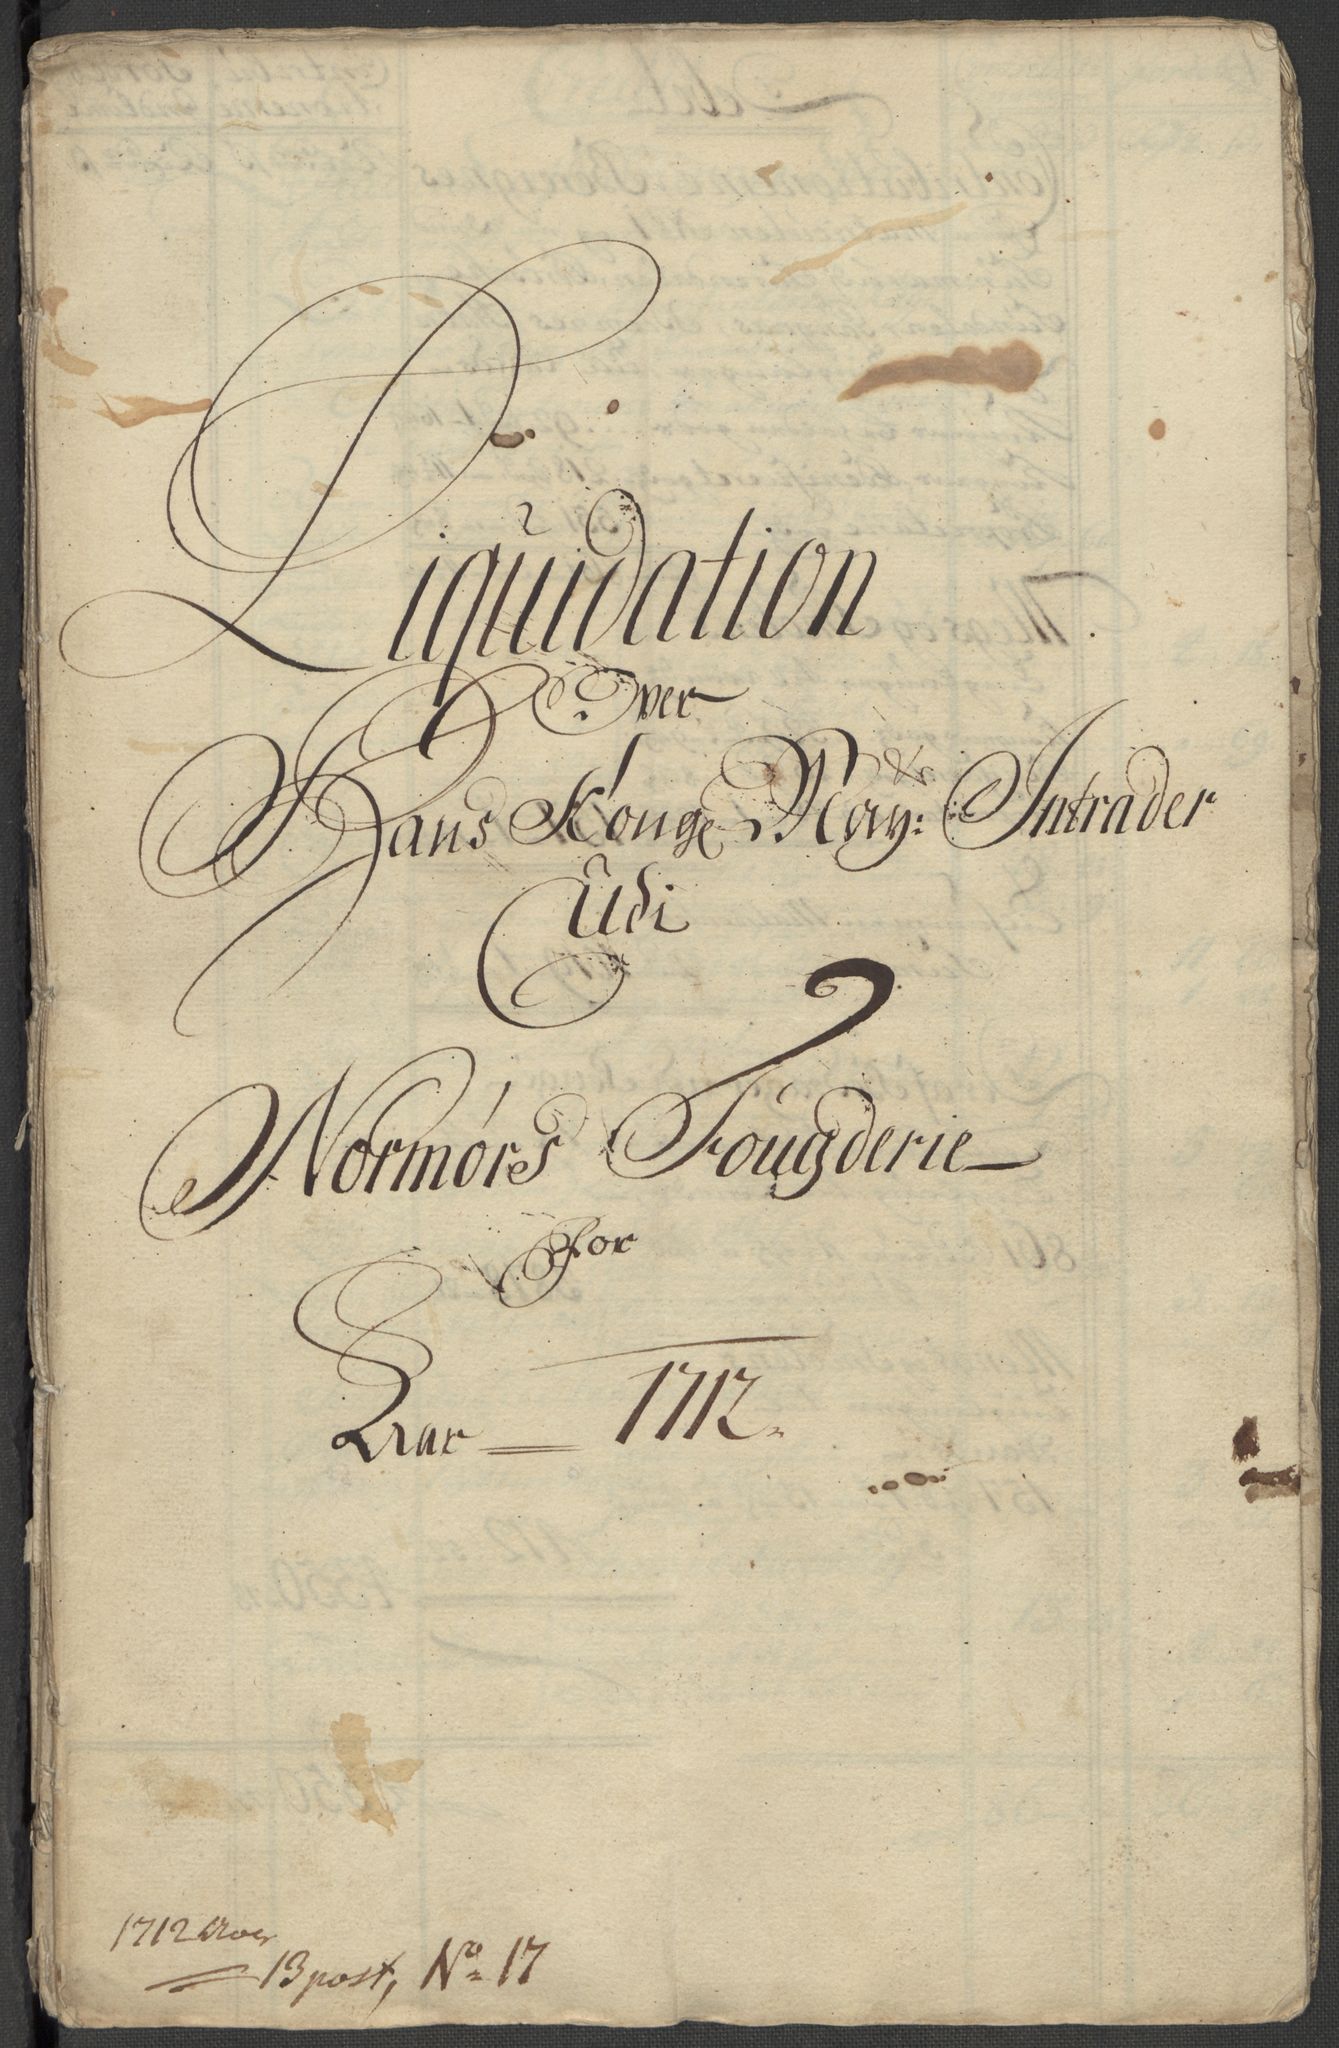 Liqũidation
Over
Hans Kongl May:ts Intrader
Udi
Normørs Fougderie
For
Aar 1712.
1712 Aars
13 post, No 17